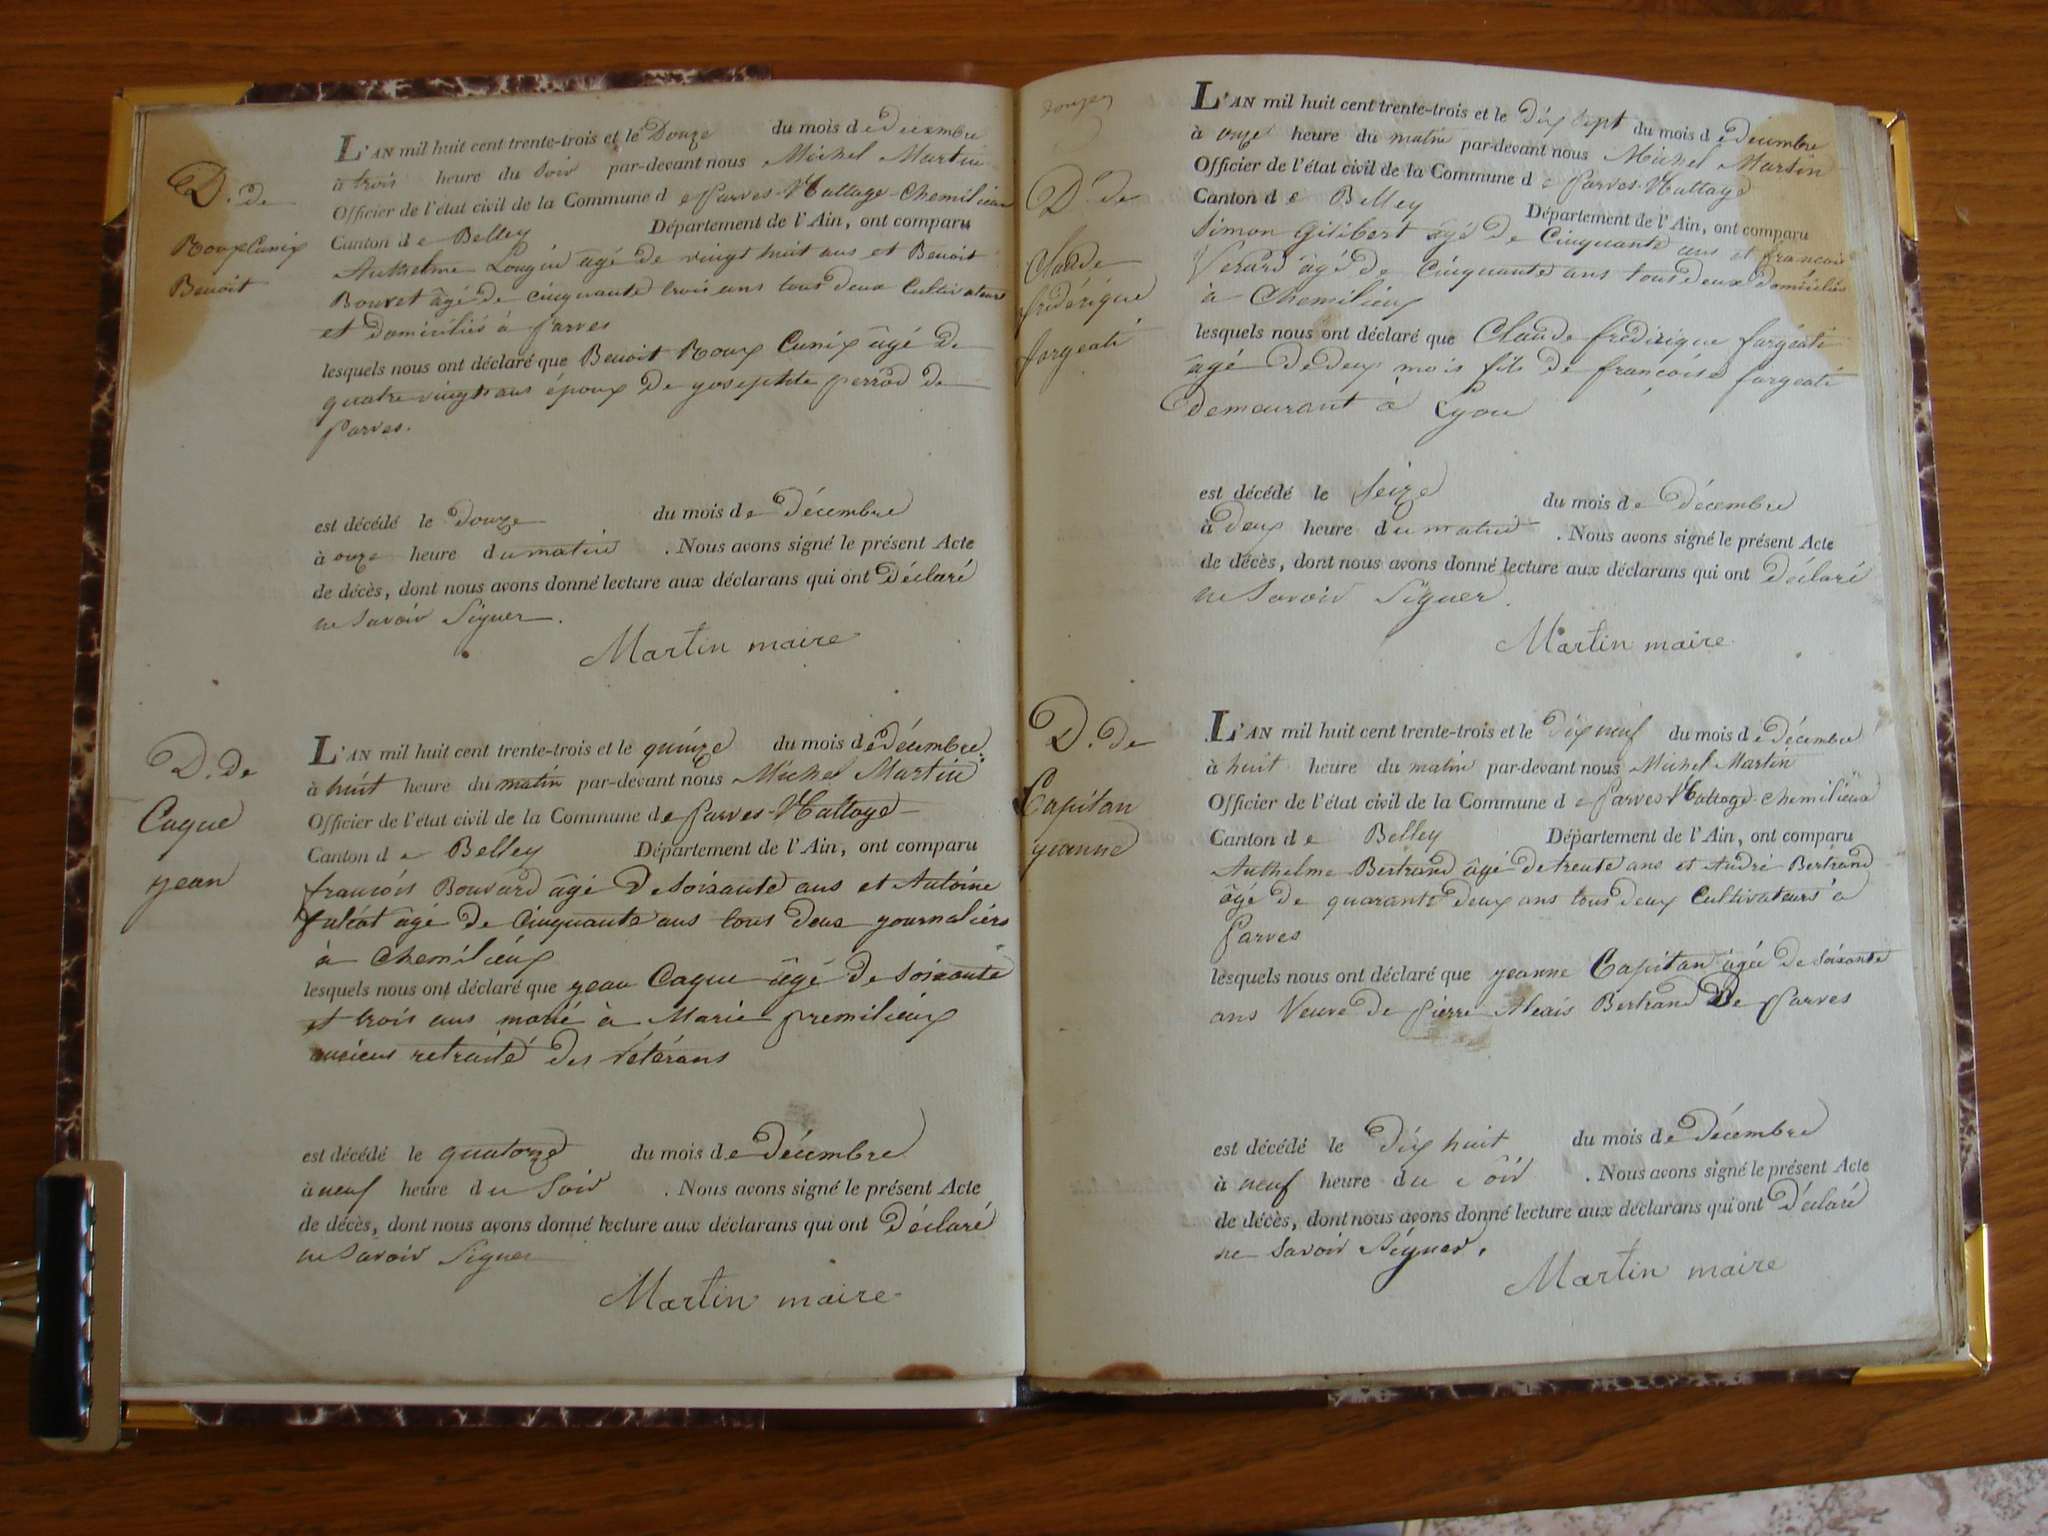 D. de
Roux Cunix
Benoit
L'AN mil huit cent trente-trois et le Douze du mois de décembre
à trois heure du soir par-devant nous Michel Martin
Officier de l'état civil de la Commune de Parves-Nattage-Chemilieu
Canton de Belley Département de l'Ain, ont comparu
Anthelme Longin âgé de vingt huit ans et Benoit
Bouvet âgé de cinquante trois ans tous deux Cultivateurs
et Domiciliés à Parves
lesquels nous ont déclaré que Benoit Roux Cunix âgé de
quatre vingts ans époux De yosephte perrod de
Parves.
est décédé le douze du mois de Décembre
à onze heure du matin . Nous avons signé le présent Acte
de décès, dont nous avons donné lecture aux déclarans qui ont Déclaré
ne Savoir Signer.
Martin maire
D. de
Caque
yean
L'AN mil huit cent trente-trois et le quinze du mois de Décembre
à huit heure du matin par-devant nous Michel Martin
Officier de l'état civil de la Commune de Parves-Nattage
Canton de Belley Département de l'Ain, ont comparu
françois Bouvard âgé De soixante ans et Antoine
âgé de Cinquante ans tous Deux yournaliers
à Chemilieux
lesquels nous ont déclaré que yean Caque âgé de soixante
et trois ans marié à Marie premilieux
anciens retraité des vétérans
est décédé le quatorze du mois de Décembre
à neuf heure du Soir . Nous avons signé le présent Acte
de décès, dont nous avons donné lecture aux déclarans qui ont Déclaré
ne Savoir Signer
Martin maire
D. de
Claude
frédérique
fargeati
L'AN mil huit cent trente-trois et le Dix Sept du mois de Décembre
à onze heure du matin par-devant nous Michel Martin
Officier de l'état civil de la Commune de Parves-Nattage
Canton de Belley Département de l'Ain, ont comparu
Simon Gilibert âgé De Cinquante ans et françois
Verard âgé de Cinquante ans tous deux domiciliés
à Chemilieux
lesquels nous ont déclaré que Claude frédérique fargéati
âgé De deux mois fils de françoise fargeati
demeurant à Lyon
est décédé le Seize du mois de Décembre
à Deux heure du matin . Nous avons signé le présent Acte
de décès, dont nous avons donné lecture aux déclarans qui ont Déclaré
ne Savoir Signer.
Martin maire
D. de
Capitan
yeanne
L'AN mil huit cent trente-trois et le Dix neuf du mois de Décembre
à huit heure du matin par-devant nous Michel Martin
Officier de l'état civil de la Commune de Parves-Nattage-Chemilieux
Canton de Belley Département de l'Ain, ont comparu
Anthelme Bertrand âgé de trente ans et André Bertrand
âgé de quarante deux ans tous deux Cultivateurs à
Parves
lesquels nous ont déclaré que yeanne Capitan âgée de Soixante
ans Veuve de Pierre Alexis Bertrand De Parves
est décédé le Dix huit du mois de Décembre
à neuf heure du soir . Nous avons signé le présent Acte
de décès, dont nous avons donné lecture aux déclarans qui ont Déclaré
ne Savoir Signer.
Martin maire